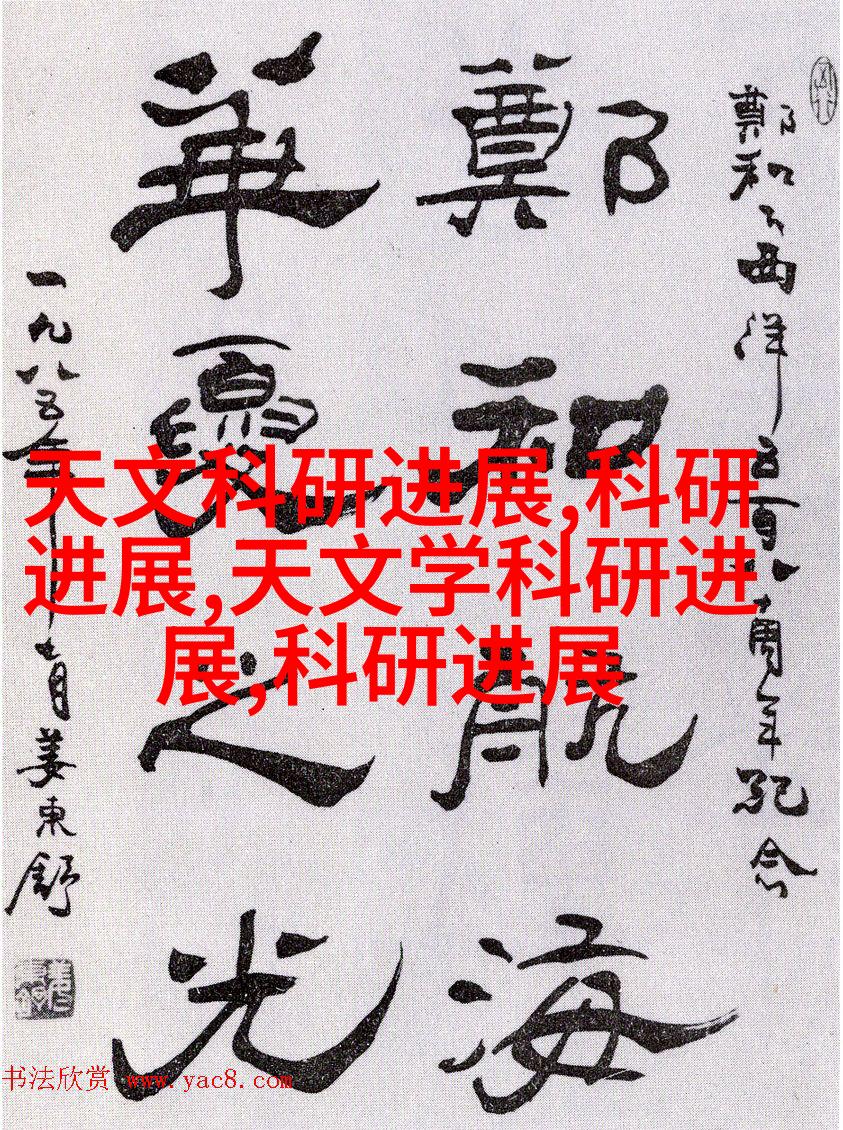 鄭和下西洋五百八十周年紀念
鄭和航海
華夏之光
一九八五年十一月姜東舒
天文科研进展,科研
进展,天文学科研进
展,科研进展
书法欣赏 www.yac8.com